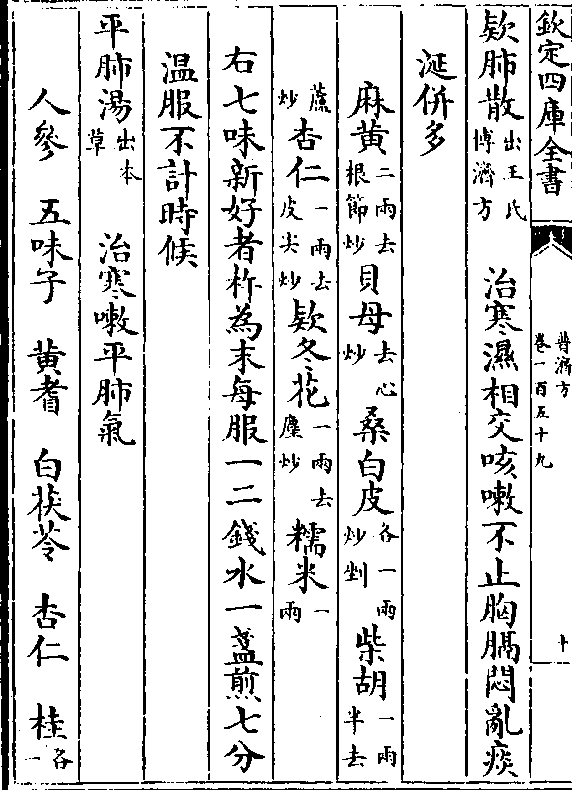 欽定四庫全書
普濟方
卷一百五十九
十
欵肺散出王氏博濟方 治寒濕相交咳嗽不止胸膈悶亂痰
涎併多
麻黃二兩去根節炒貝母去心炒桑白皮各一兩炒剉柴胡一兩半去
蘆炒杏仁一兩去皮尖炒欵冬花一兩去塵炒糯米一兩
右七味新好者杵為末每服一二錢水一盞煎七分
温服不計時候
平肺湯出本草 治寒嗽平肺氣
人參 五味子 黃耆 白茯苓 杏仁 桂各一